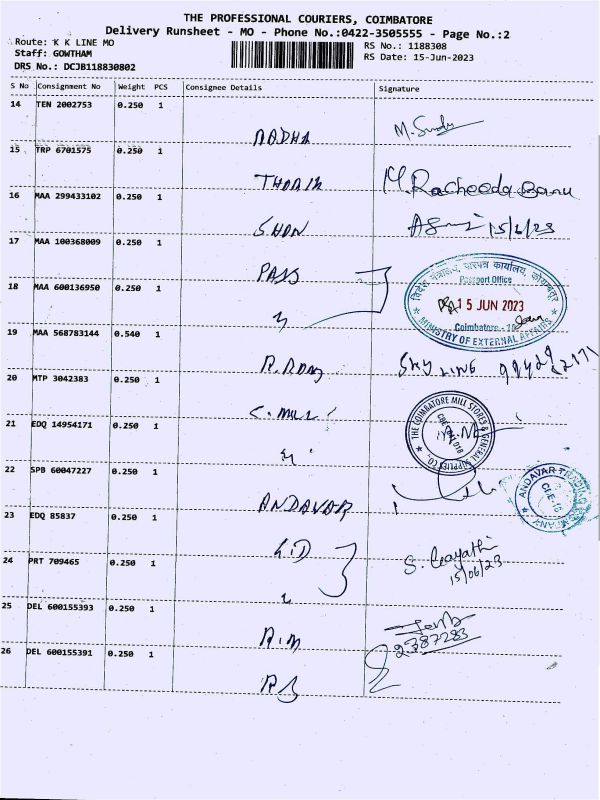 THE PROFESSIONAL COURIERS, COIMBATORE
Delivery Runsheet - MO - Phone No.:0422-3505555 - Page No.:2
Route: K K LINE MO
RS No.: 1188308
Staff: GOWTHAM
RS Date: 15-Jun-2023
DRS No.: DCJB118830802
S No Consignment No Weight PCS Consignee Details Signature
14 TEN 2002753 0.250 1
15 TRP 6701575 0.250 1
M. Racheeda Banu
16 MAA 299433102 0.250 1
15/6/23
17 MAA 100368009 0.250 1
PASS
विदेश मंत्रालय, पारपत्र कार्यालय, कोयम्बतूर
Passport Office
15 JUN 2023
Coimbatore - 18
MINISTRY OF EXTERNAL AFFAIRS
18 MAA 600136950 0.250 1
19 MAA 568783144 0.540 1
SKY LINE
20 MTP 3042383 0.250 1
C. MILL
THE COIMBATORE MILL STORES & GENERAL SUPPLIES CO.,
21 EDQ 14954171 0.250 1
22 SPB 60047227 0.250 1
ANDAVAR
ANDAVAR TRADING COMPANY
23 EDQ 85837 0.250 1
S. Gayathi
15/06/23
24 PRT 709465 0.250 1
25 DEL 600155393 0.250 1
2387283
26 DEL 600155391 0.250 1